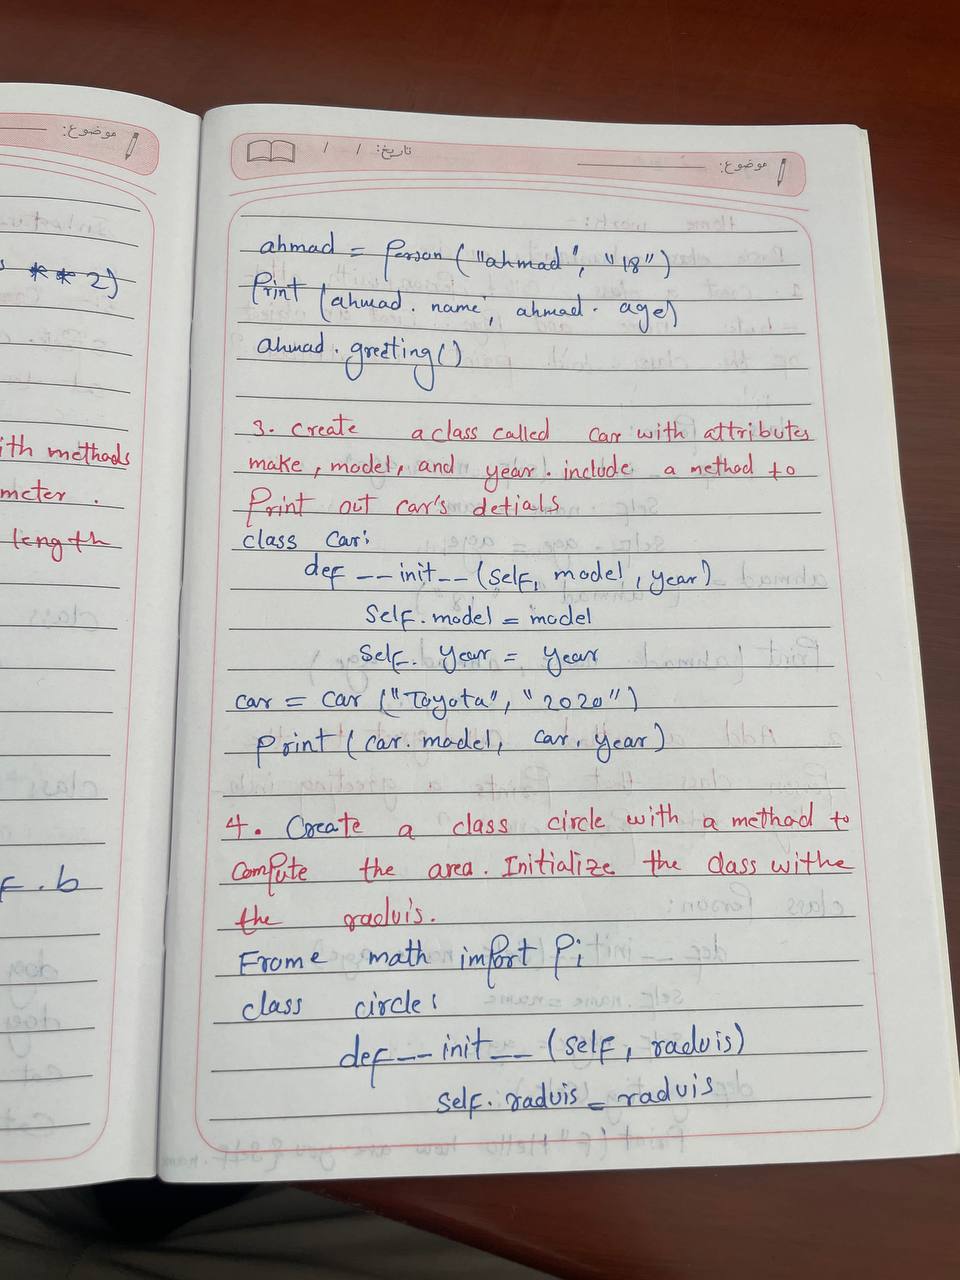 موضوع:
s ** 2)
ith methods
meter.
length
F.b
تاریخ: / /
موضوع:
ahmad = Person ("ahmad", "18")
Print (ahmad. name, ahmad. age)
ahmad. greeting()
3. create a class called car with attributes
make, model, and year. include a method to
Print out car's detials
class car:
def __init__(self, model, year)
self.model = model
self. year = year
car = car ("Toyota", "2020")
print (car. model, car. year)
4. Create a class circle with a method to
compute the area. Initialize the class withe
the raduis.
Frome math import Pi
class circle:
def __init__ (self, raduis)
self. raduis = raduis